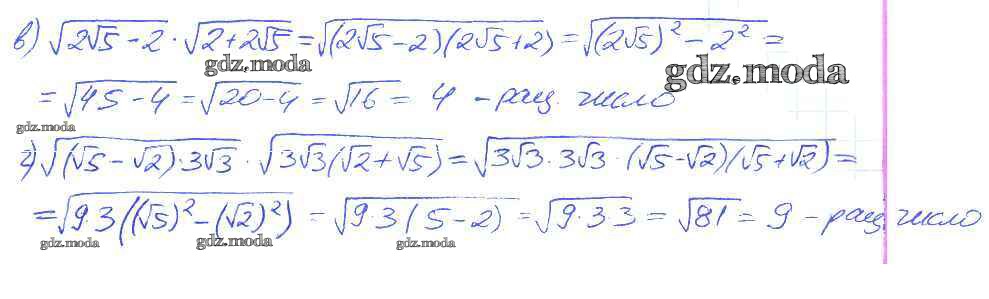 в) √(2√5 - 2) · √(2 + 2√5) = √((2√5 - 2)(2√5 + 2)) = √((2√5)² - 2²) =
gdz.moda
gdz.moda
= √(4·5 - 4) = √(20 - 4) = √16 = 4 - рац. число
gdz.moda
г) √((√5 - √2)·3√3) · √(3√3(√2 + √5)) = √(3√3·3√3·(√5 - √2)(√5 + √2)) =
= √(9·3((√5)² - (√2)²)) = √(9·3(5 - 2)) = √(9·3·3) = √81 = 9 - рац. число
gdz.moda
gdz.moda
gdz.moda